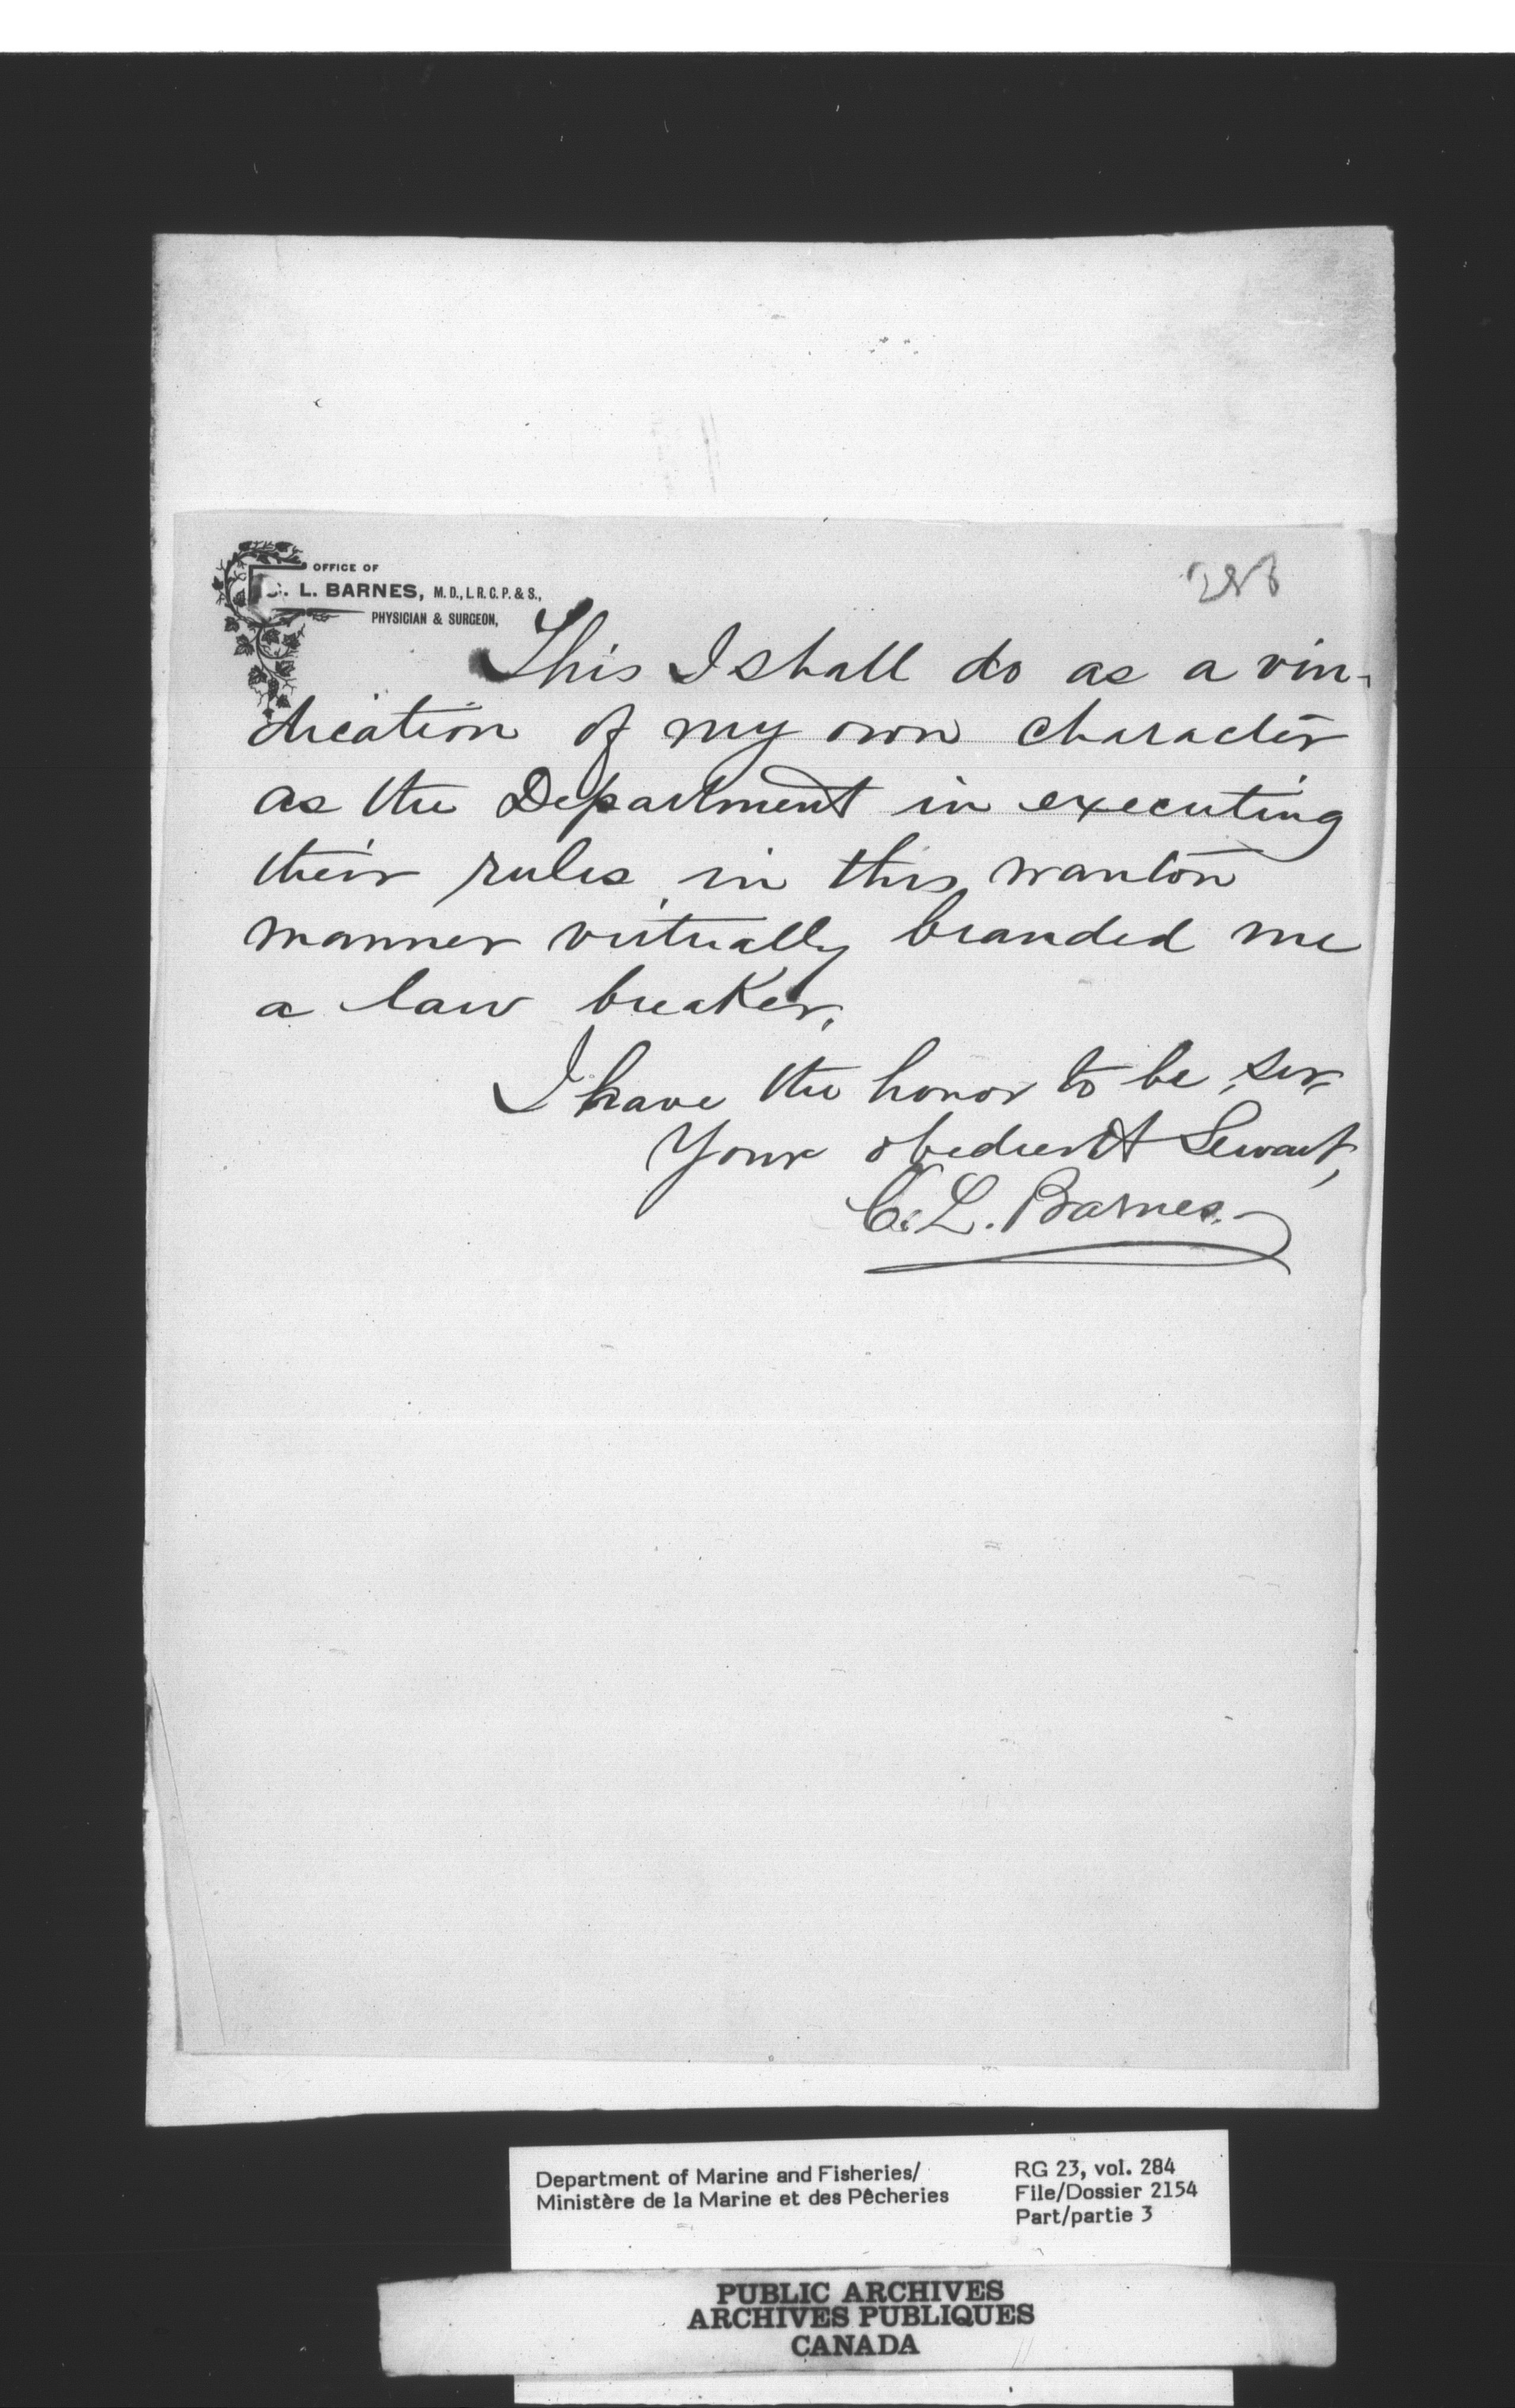 OFFICE OF
C. L. BARNES, M.D., L.R.C.P. & S.,
PHYSICIAN & SURGEON,
This I shall do as a vin-
dication of my own character
as the Department in executing
their rules in this wanton
manner virtually branded me
a law breaker.
I have the honor to be, sir,
Your obedient Servant,
C. L. Barnes.
Department of Marine and Fisheries/
Ministère de la Marine et des Pêcheries
RG 23, vol. 284
File/Dossier 2154
Part/partie 3
PUBLIC ARCHIVES
ARCHIVES PUBLIQUES
CANADA